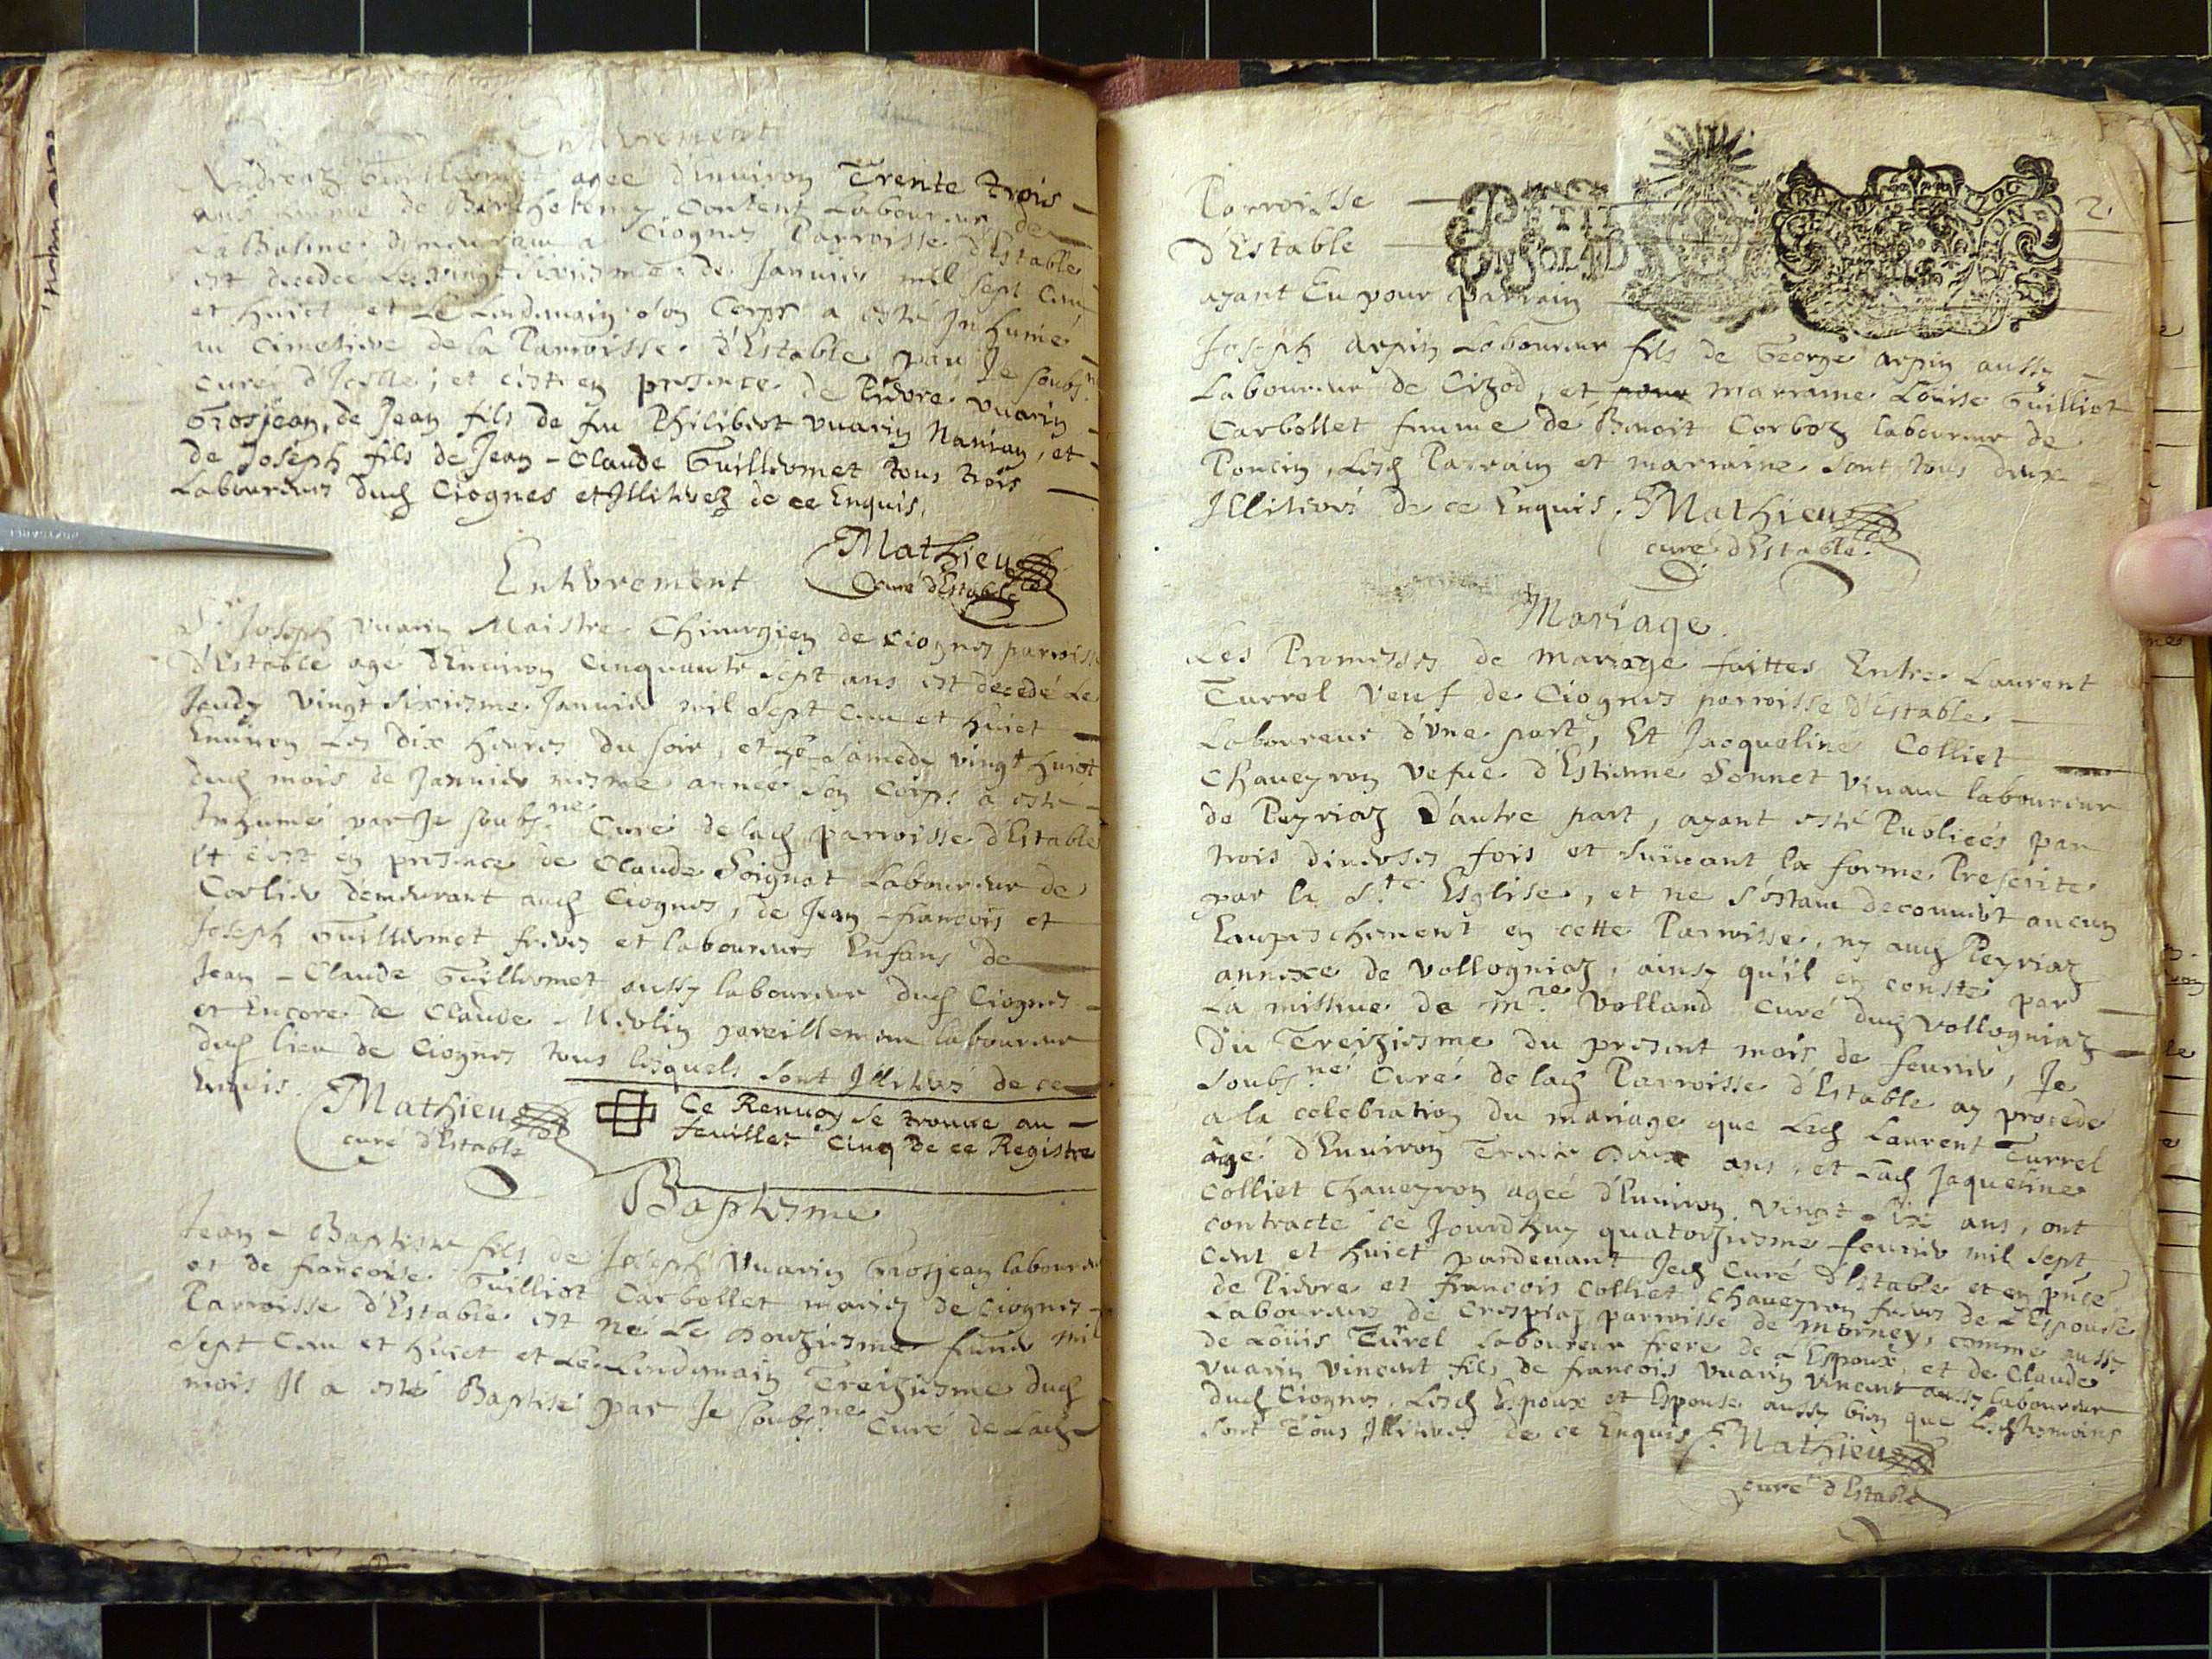 Enterrement
Andreaz Guilliermet agée d'Enuiron Trente trois
ans femme de Barthelemy Content Laboureur de
La Balme demeurant a Ciognes Parroisse d'Estable
est decedée Le vingt sixiesme de Januier mil sept cent
et huict et Le Lendemain son Corps a esté Inhumé
au Cimetiere de la Parroisse d'Estable par Je soubs.né
Curé d'Icelle ; et c'est en presence de Pierre vuarin
Grosjean, de Jean fils de feu Philibert vuarin Nanian, et
de Joseph fils de Jean-Claude Guilliermet tous trois
Laboureurs dud Ciognes et Illiterez de ce Enquis.
Mathieu
curé d'Estable
Enterrement
Sr Joseph vuarin Maistre Chirurgien de Ciognes parroisse
d'Estable agé d'Enuiron Cinquante sept ans est décedé Le
Jeudy vingt sixiesme Januier mil sept cent et huict
Enuiron Les dix heures du soir, et Le samedy vingt huict
dud mois de Januier mesme année son Corps a esté
Inhumé par Je soubs.né Curé de lad parroisse d'Estable
Et c'est en presence de Claude Soignat Laboureur de
Corlier demeurant aud Ciognes, de Jean-francois et
Joseph Guilliermet freres et laboureurs Enfans de
Jean-Claude Guilliermet aussy laboureur dud Ciognes
et Encore de Claude Merlin pareillement laboureur
dud lieu de Ciognes tous lesquels sont Illiterés de ce
Enquis.
Mathieu
curé d'Estable
Ce Renuoy se trouue au
feuillet Cinq de ce Registre
Baptesme
Jean-Baptiste fils de Joseph Vuarin Grosjean laboureur
et de francoise Guilliot Carbollet mariez de Ciognes
Parroisse d'Estable est né Le Douziesme feurier mil
sept Cent et huict et Le Lendemain Treiziesme dud
mois Il a esté Baptisé par Je soubs.né Curé de Lad
2.
Parroisse
d'Estable
PETIT
UN SOL 4 D
ayant Eu pour parrain
Joseph arpin Laboureur fils de George arpin aussy
Laboureur de Cizod, et pour marraine Louise Guilliot
Carbollet femme de Benoit Corboz laboureur de
Poncin, Lesd Parrain et marraine sont tous deux
Illiterés de ce Enquis. Mathieu
curé d'Estable.
Mariage.
Les Promesses de mariage faittes Entre Laurent
Turrel veuf de Ciognes parroisse d'Estable
Laboureur d'vne part, Et Jacqueline Colliet
Chaueyron vefue d'Estienne Sonnet viuant laboureur
de Peyriaz D'autre part, ayant esté Publiées par
trois diuerses fois et suiuant la forme Prescrite
par la S.te Esglise, et ne s'estant decouuert aucun
Empeschement en cette Parroisse, ny aud Peyriaz
annexe de vollogniaz, ainsy qu'il en conste par
La missiue de m.re Volland curé dud Vollogniaz
Du Treiziesme du present mois de feurier, Je
soubs.né Curé de lad Parroisse d'Estable ay procedé
a la celebration du mariage que Led Laurent Turrel
âgé d'Enuiron Trente Deux ans, et Lad Jaqueline
Colliet Chaueyron agée d'Enuiron vingt-six ans, ont
contracté ce Jourdhuy quatorziesme feurier mil sept
cent et huict pardeuant Jed Curé d'Estable et en pnce
de Pierre et francois Colliet Chaueyron freres de L'Espouse
Laboureurs de Crespiaz parroisse de morney, comme aussy
de Loüis Turrel Laboureur frere de L'Espoux, et de Claude
vuarin vincent fils de francois vuarin vincent aussy laboureur
dud Ciognes, Lesd Espoux et Espouse aussy bien que Lesd tesmoins
sont Tous Illiterés de ce Enquis. Mathieu
curé d'Estable